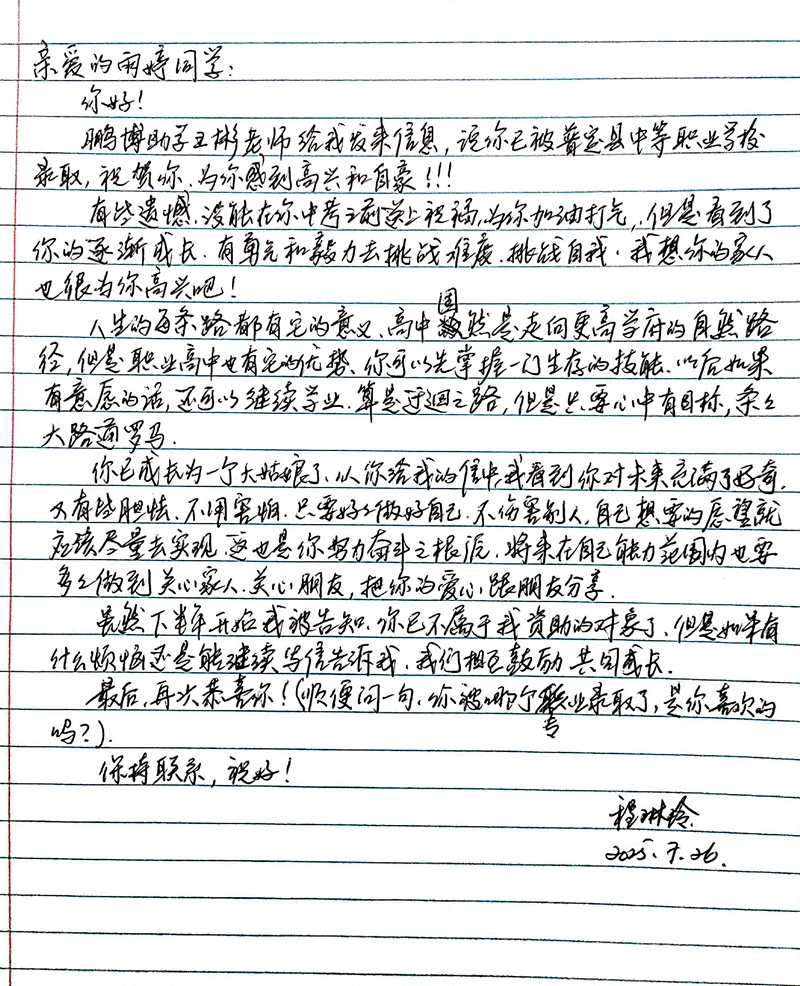 亲爱的雨婷同学:
你好!
鹏博助学王彬老师给我发来信息,说你已被普定县中等职业学校
录取,祝贺你,为你感到高兴和自豪!!!
有些遗憾,没能在你中考之前送上祝福,为你加油打气,但是看到了
你的逐渐成长,有勇气和毅力去挑战难度,挑战自我,我想你的家人
也很为你高兴吧!
人生的每条路都有它的意义、高中固然是走向更高学府的自然路
径,但是职业高中也有它的优势、你可以先掌握一门生存的技能,以后如果
有意愿的话,还可以继续学业,算是迂迴之路,但是只要心中有目标,条条
大路通罗马.
你已成长为一个大姑娘了、从你给我的信中,我看到你对未来充满了好奇,
又有些胆怯、不用害怕、只要好好做好自己、不伤害别人,自己想要的愿望就
应该尽量去实现、这也是你努力奋斗之根源,将来在自己能力范围内也要
多多做到关心家人、关心朋友,把你的爱心跟朋友分享.
虽然下半年开始我被告知、你已不属于我资助的对象了、但是如果有
什么烦恼还是能继续写信告诉我,我们相互鼓励共同成长.
最后,再次恭喜你!(顺便问一句,你被哪个专业录取了,是你喜欢的
吗?).
保持联系,祝好!
程琳玲
2025.7.26.